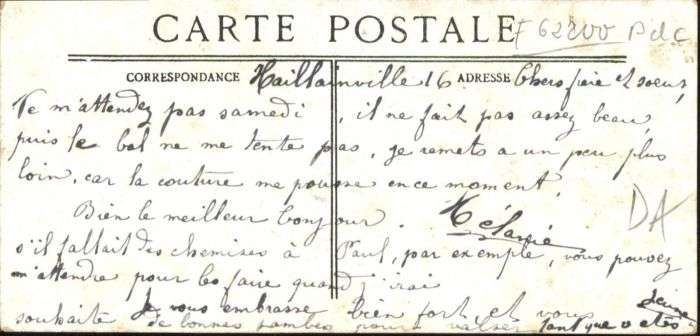 CARTE POSTALE
F 62200 PdC
CORRESPONDANCE Haillainville 16 ADRESSE Chers frère et soeur,
Ne m'attendez pas samedi, il ne fait pas assez beau,
puis le bal ne me tente pas, je remets a un peu plus
loin, car la couture me pousse en ce moment.
DA
Bien le meilleur bonjour. Mélanie
s'il fallait des chemises à Paul, par exemple, vous pouvez
m'attendre pour les faire quand j'irai
Je vous embrasse bien fort et vous
souhaite de bonnes jambes pour valser tant que